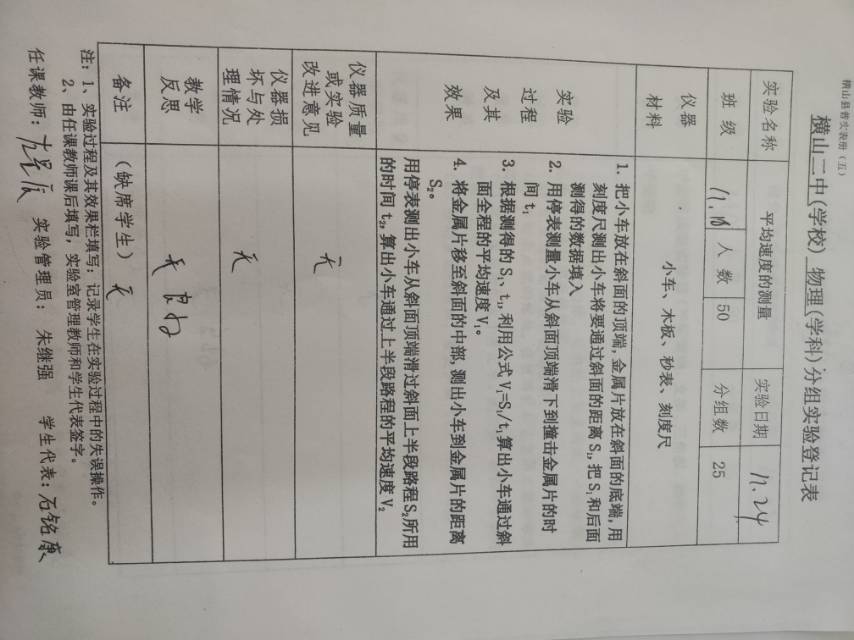 横山县普实表册（五）
横山二中(学校) 物理(学科)分组实验登记表
实验名称 平均速度的测量 实验日期 11.24
班级 人数 50 分组数 25
仪器材料 小车、木板、秒表、刻度尺
实验过程及其效果
1. 把小车放在斜面的顶端,金属片放在斜面的底端,用
刻度尺测出小车将要通过斜面的距离S₁,把S₁和后面
测得的数据填入
2. 用停表测量小车从斜面顶端滑下到撞击金属片的时
间t₁
3. 根据测得的S₁、t₁,利用公式V₁=S₁/t₁算出小车通过斜
面全程的平均速度V₁。
4. 将金属片移至斜面的中部,测出小车到金属片的距离
S₂。
用停表测出小车从斜面顶端滑过斜面上半段路程S₂所用
的时间t₂,算出小车通过上半段路程的平均速度V₂
仪器质量或实验改进意见 无
仪器损坏与处理情况 无
教学反思
备注 （缺席学生）无
注：1、实验过程及其效果栏填写：记录学生在实验过程中的失误操作。
2、由任课教师课后填写，实验室管理教师和学生代表签字。
任课教师： 实验管理员： 朱继强 学生代表：石铭康